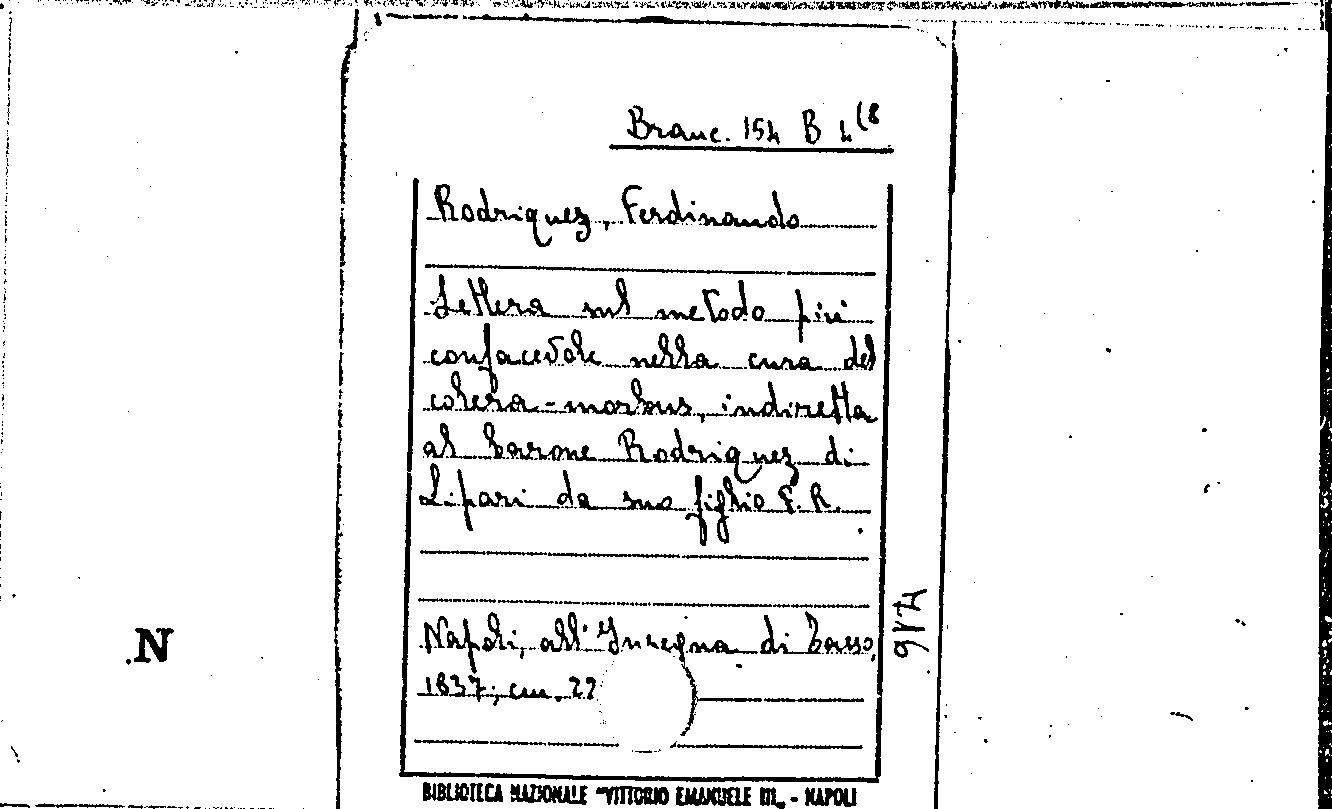 Branc. 154 B 4(8
Rodriquez, Ferdinando
Lettera sul metodo più
confacevole nella cura del
colera-morbus, indiretta
al barone Rodriquez di
Lipari da suo figlio F. R.
Napoli, all'Insegna di Tasso,
1837; cm. 22
N
BIBLIOTECA NAZIONALE "VITTORIO EMANUELE III" - NAPOLI